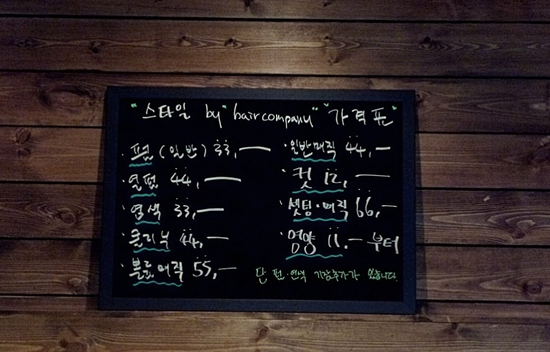 "스타일 by "haircompany" "가격표"
· 파마 (일반) 33,—
· 열펌 44,—
· 염색 33,—
· 클리닉 44,—
· 볼륨매직 55,—
· 일반매직 44,—
· 컷 12,—
· 셋팅·매직 66,—
· 영양 11,— 부터
단 펌·염색 기장추가가 있습니다.